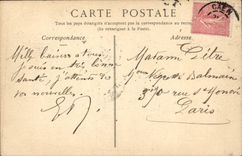 CARTE POSTALE
Tous les pays étrangers n'acceptent pas la correspondance au recto.
(Se renseigner à la Poste).
Correspondance
Adresse
Mille baisers à tous
je suis en très bonne
santé, j'attends de
vos nouvelles.
Madame
de Balmain
370 rue St Honoré
Paris